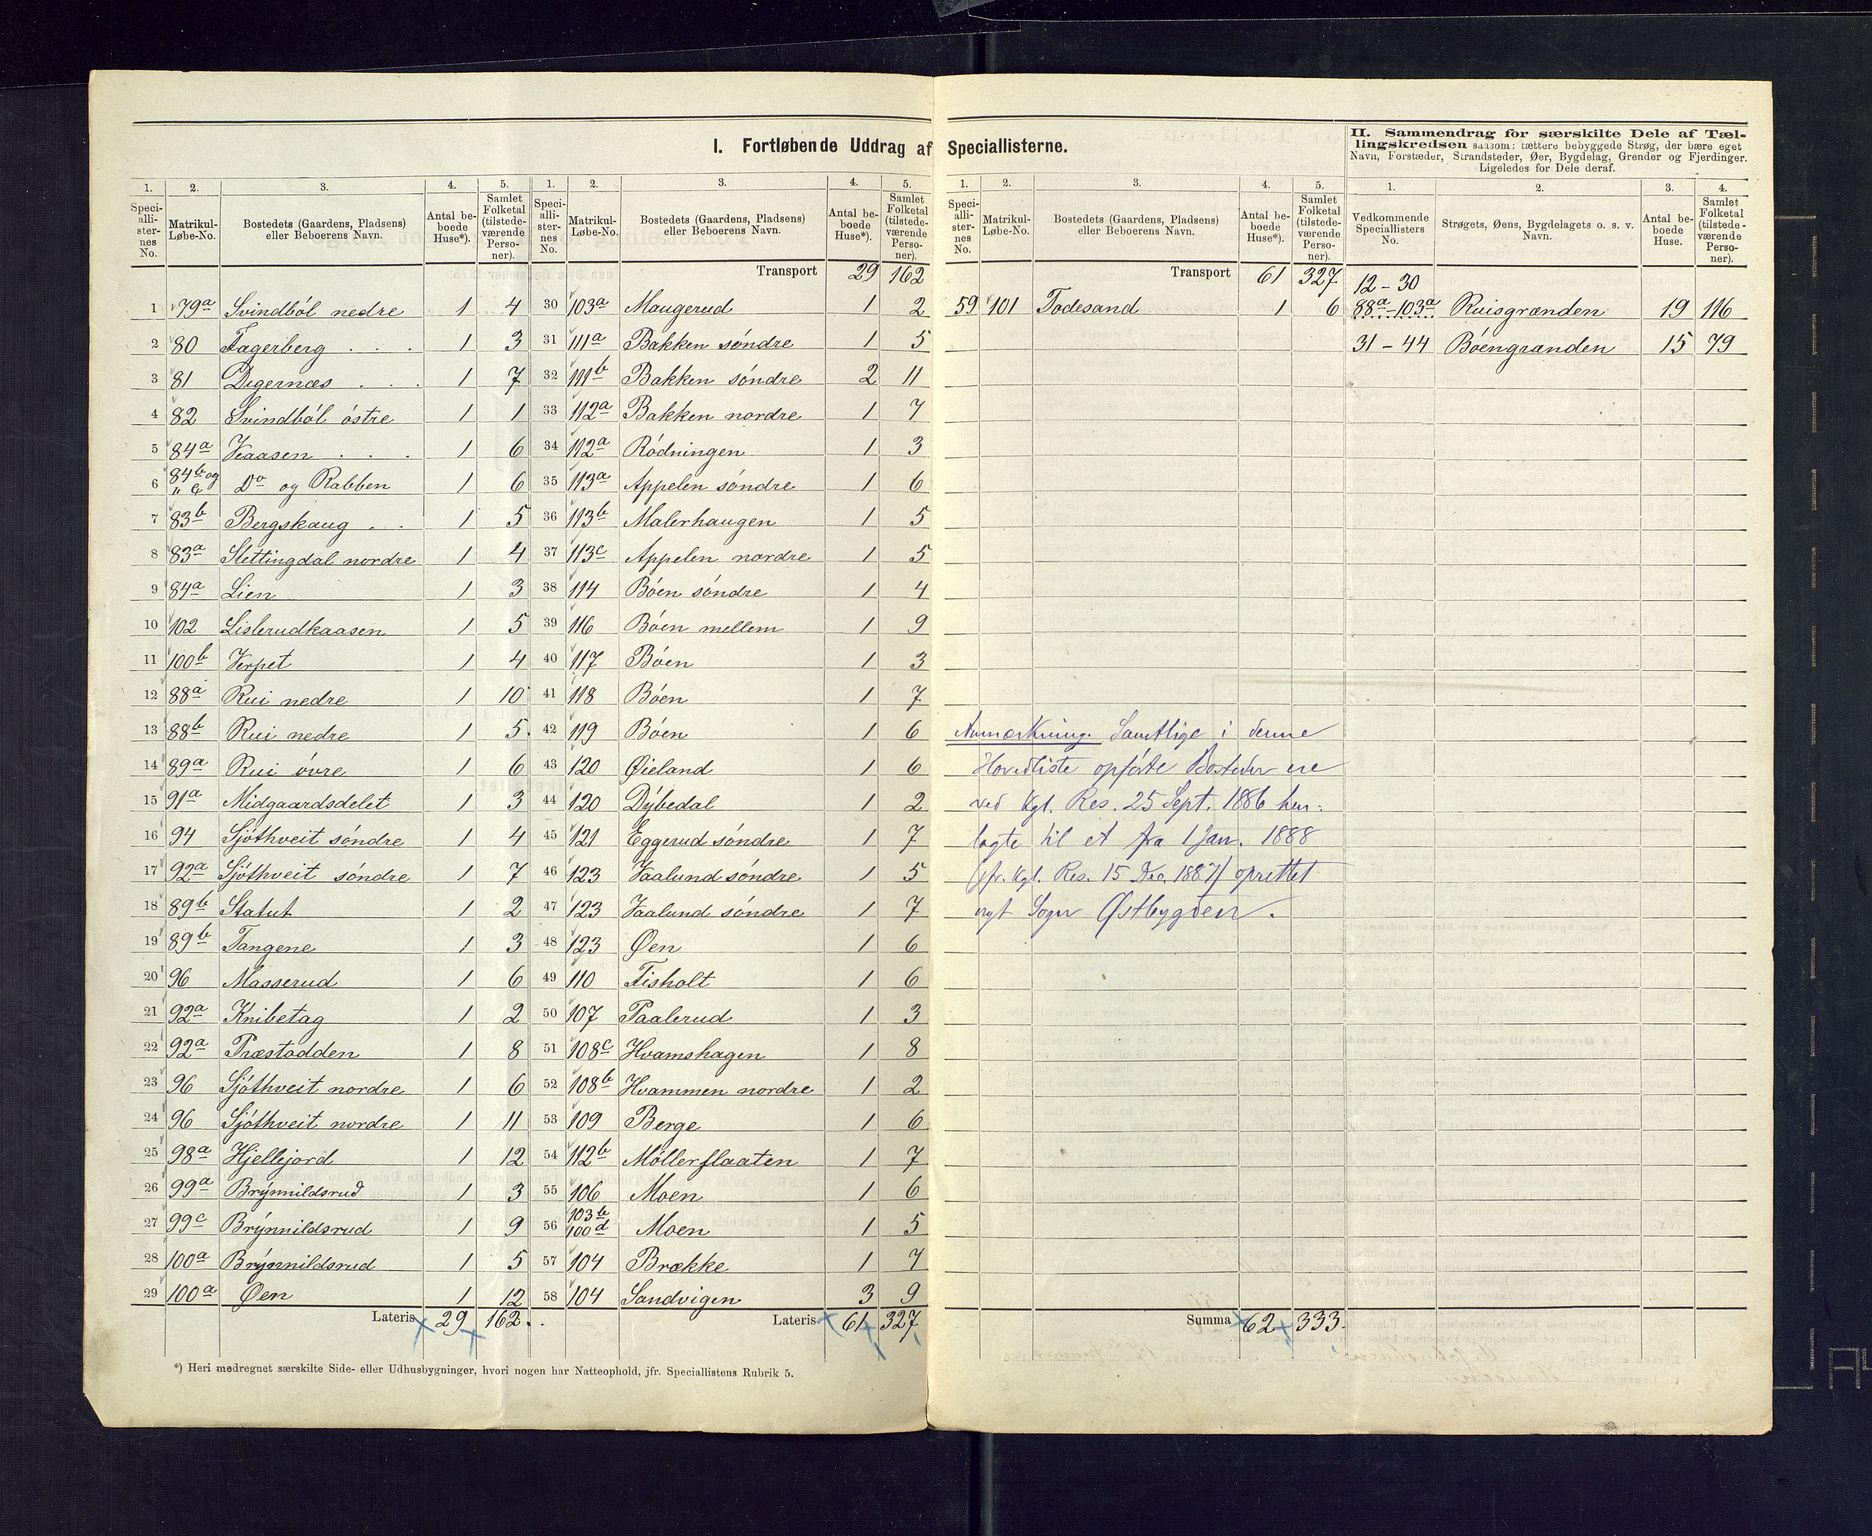 I. Fortløbende Uddrag af Speciallisterne.
II. Sammendrag for særskilte Dele af Tæl-
lingskredsen saasom: tættere bebyggede Strøg, der bære eget
Navn, Forstæder, Strandsteder, Øer, Bygdelag, Grender og Fjerdinger.
Ligeledes for Dele deraf.
1. 2. 3. 4. 5.
Speciallisternes No. Matrikul-Løbe-No. Bostedets (Gaardens, Pladsens) eller Beboerens Navn. Antal beboede Huse*). Samlet Folketal (tilstedeværende Personer).
1 79a Svindból nedre 1 4
2 80 Fagerberg . . . 1 3
3 81 Digernæs . . . 1 7
4 82 Svindból óstre 1 1
5 84a Kaasen . . . 1 6
6 84b og " c Do og Rabben 1 6
7 83b Bergskaug . . 1 5
8 83a Slettingdal nordre 1 4
9 84a Lien 1 3
10 102 Lislerudkaasen 1 5
11 100b Verpet 1 4
12 88a Rui nedre 1 10
13 88b Rui nedre 1 5.
14 89a Rui óvre 1 6
15 91a Midgaardsdelet 1 3
16 94 Sjóthveit sóndre 1 4
17 92a Sjóthveit sóndre 1 7
18 89b Statut 1 2
19 89b Tangene 1 3
20 96 Masserud 1 6
21 92a Knibetag 1 2
22 92a Præstodden 1 8
23 96 Sjóthveit nordre 1 6
24 96 Sjóthveit nordre 1 11
25 98a Hjellejord 1 12
26 99a Brynnildsrud 1 3
27 99c Brynnildsrud 1 9
28 100a Brynnildsrud 1 5
29 100a Øen 1 12
Lateris 29 162.
*) Heri medregnet særskilte Side- eller Udhusbygninger, hvori nogen har Natteophold, jfr. Speciallistens Rubrik 5.
1. 2. 3. 4. 5.
Speciallisternes No. Matrikul-Løbe-No. Bostedets (Gaardens, Pladsens) eller Beboerens Navn. Antal beboede Huse*). Samlet Folketal (tilstedeværende Personer).
Transport 29 162
30 103a Maugerud 1 2
31 111a Bakken sóndre 1 5
32 111b Bakken sóndre 2 11
33 112a Bakken nordre 1 7
34 112a Ródningen 1 3
35 113a Appelen sóndre 1 6
36 113b Malerhaugen 1 5
37 113c Appelen nordre 1 5
38 114 Bóen sóndre 1 4
39 116 Bóen mellem 1 9
40 117 Bóen 1 3
41 118 Bóen 1 7
42 119 Bóen 1 6
43 120 Øieland 1 6
44 120 Dybedal 1 2
45 121 Eggerud sóndre 1 7
46 123 Jaalund sóndre 1 5
47 123 Jaalund sóndre 1 7
48 123 Øen 1 6
49 110 Fisholt 1 6
50 107 Paalerud 1 3
51 108c Hvamshagen 1 8
52 108b Hvammen nordre 1 2
53 109 Berge 1 6
54 112b Móllerflaaten 1 7
55 106 Moen 1 6
56 103b 100d Moen 1 5
57 104 Brække 1 7
58 104 Sandvigen 3 9
Lateris 61 327
1. 2. 3. 4. 5.
Speciallisternes No. Matrikul-Løbe-No. Bostedets (Gaardens, Pladsens) eller Beboerens Navn. Antal beboede Huse*). Samlet Folketal (tilstedeværende Personer).
Transport 61 327
59 101 Todesand 1 6
Anmærkning. Samtlige i denne
Hovedliste opførte Bosteder ere
ved Kgl. Res. 25 Sept. 1886 hen-
lagte til et fra 1 Jan. 1888
(jfr. Kgl. Res. 15 Dec. 1887) oprettet
nyt Sogn Østbygden.
Summa 62 333.
1. 2. 3. 4.
Vedkommende Speciallisters No. Strøgets, Øens, Bygdelagets o. s. v. Navn. Antal beboede Huse. Samlet Folketal (tilstedeværende Personer).
12 - 30
88a - 103a Ruisgrænden 19 116
31 - 44 Bóengrænden 15 79